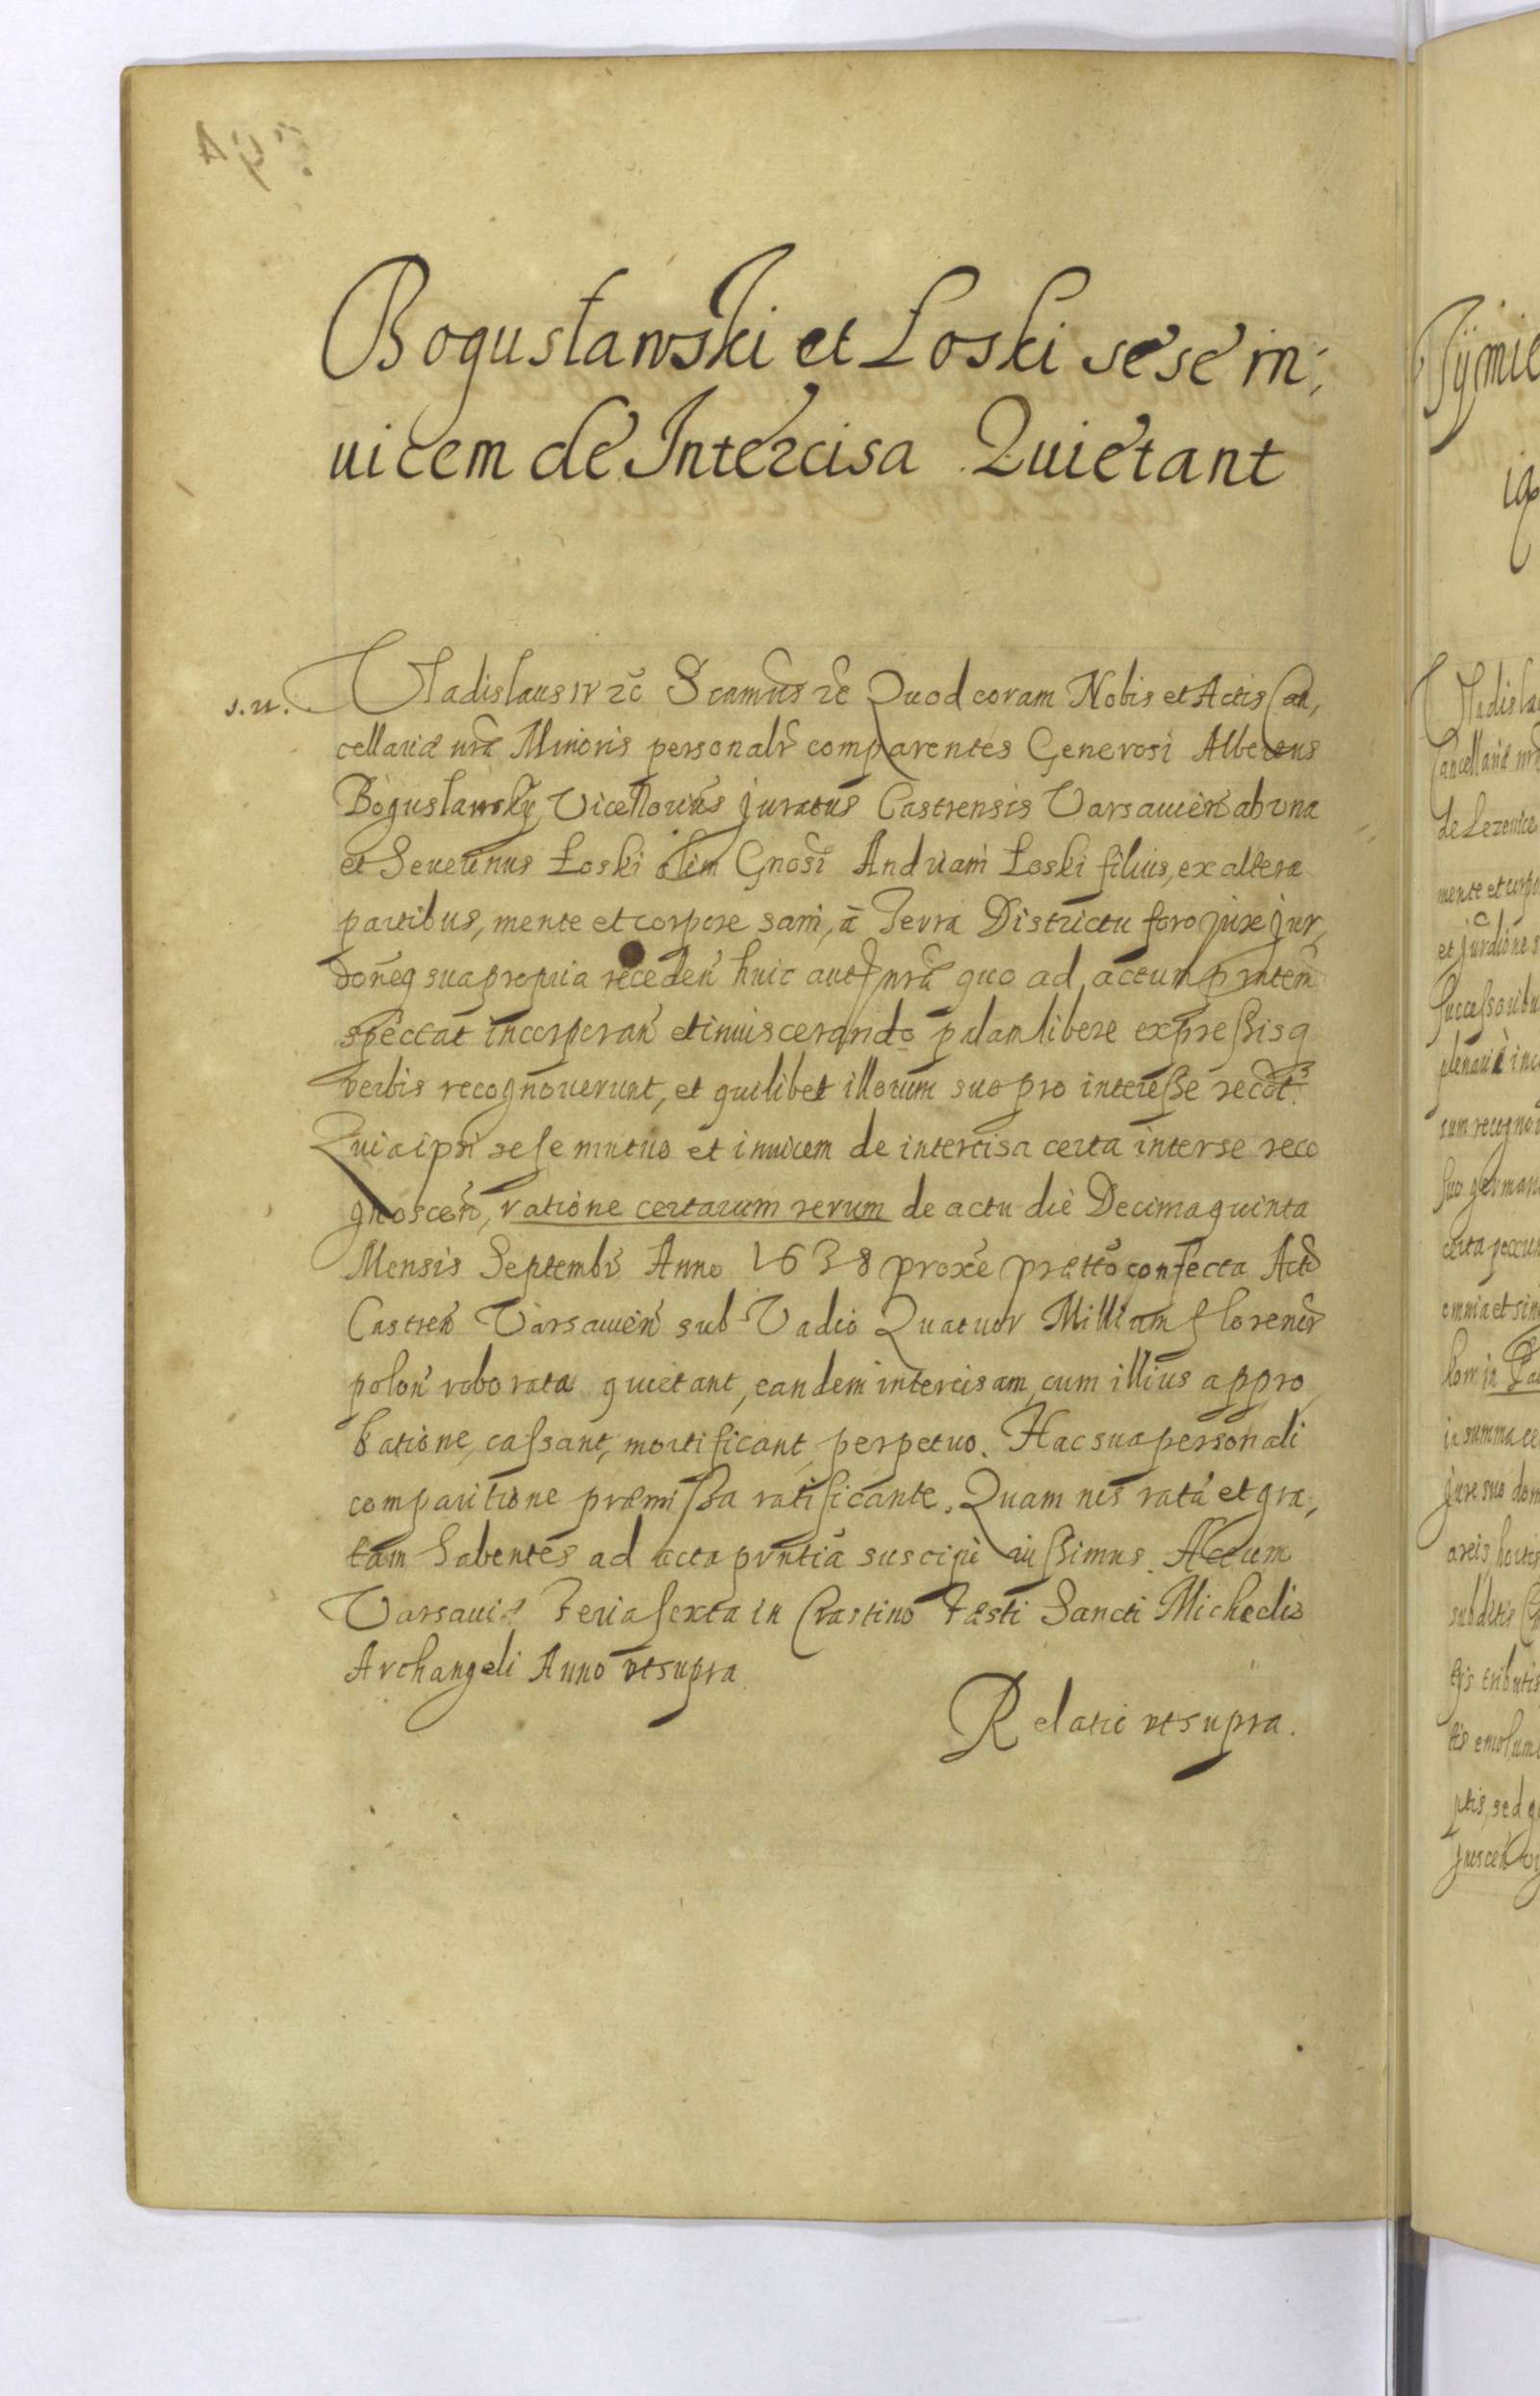 Bogusławski et Łoski sese in,
uicem de Intercisa Quietant
s. u. Vladislaus IV ꝛc Scamus ꝛc Quod coram Nobis et Actis Can,
cellariæ nræ Minoris personalr comparentes Generosi Albertus
Boguslawsky juratus Castrensis Varsauien ab vna
et Seuerinus Łoski olim Gnosi Andream Łoski filius, ex altera
partibus, mente et corpore sani, à Terra Districtu foro jure jur,
doneq sua propria receden huic nrm quo ad actum pntem
spectat incorporan et inuiscerando palam libere expressisq
verbis recognouerunt, et quilibet illorum suo pro interesse recot.
Quia ipsi sese mutuo et inuicem de intercisa certa inter se reco
gnoscen, ratione certarum rerum de actu die Decima quinta
Mensis Septembr Anno 1638 proxe prætto confecta Actis
Castren Varsauien sub Vadio Quatuor Millium florenor
polon roborata quietant, eandem intercisam, cum illius appro
batione, cassant, mortificant perpetuo. Hac sua personali
comparitione præmissa ratificante. Quam nos ratã et gra,
tam habentes ad acta pnntia suscipi iussimus. Actum
Varsauiæ Feria sexta in Crastino Festi Sancti Michaelis
Archangeli Anno vt supra
Relatio vt supra.